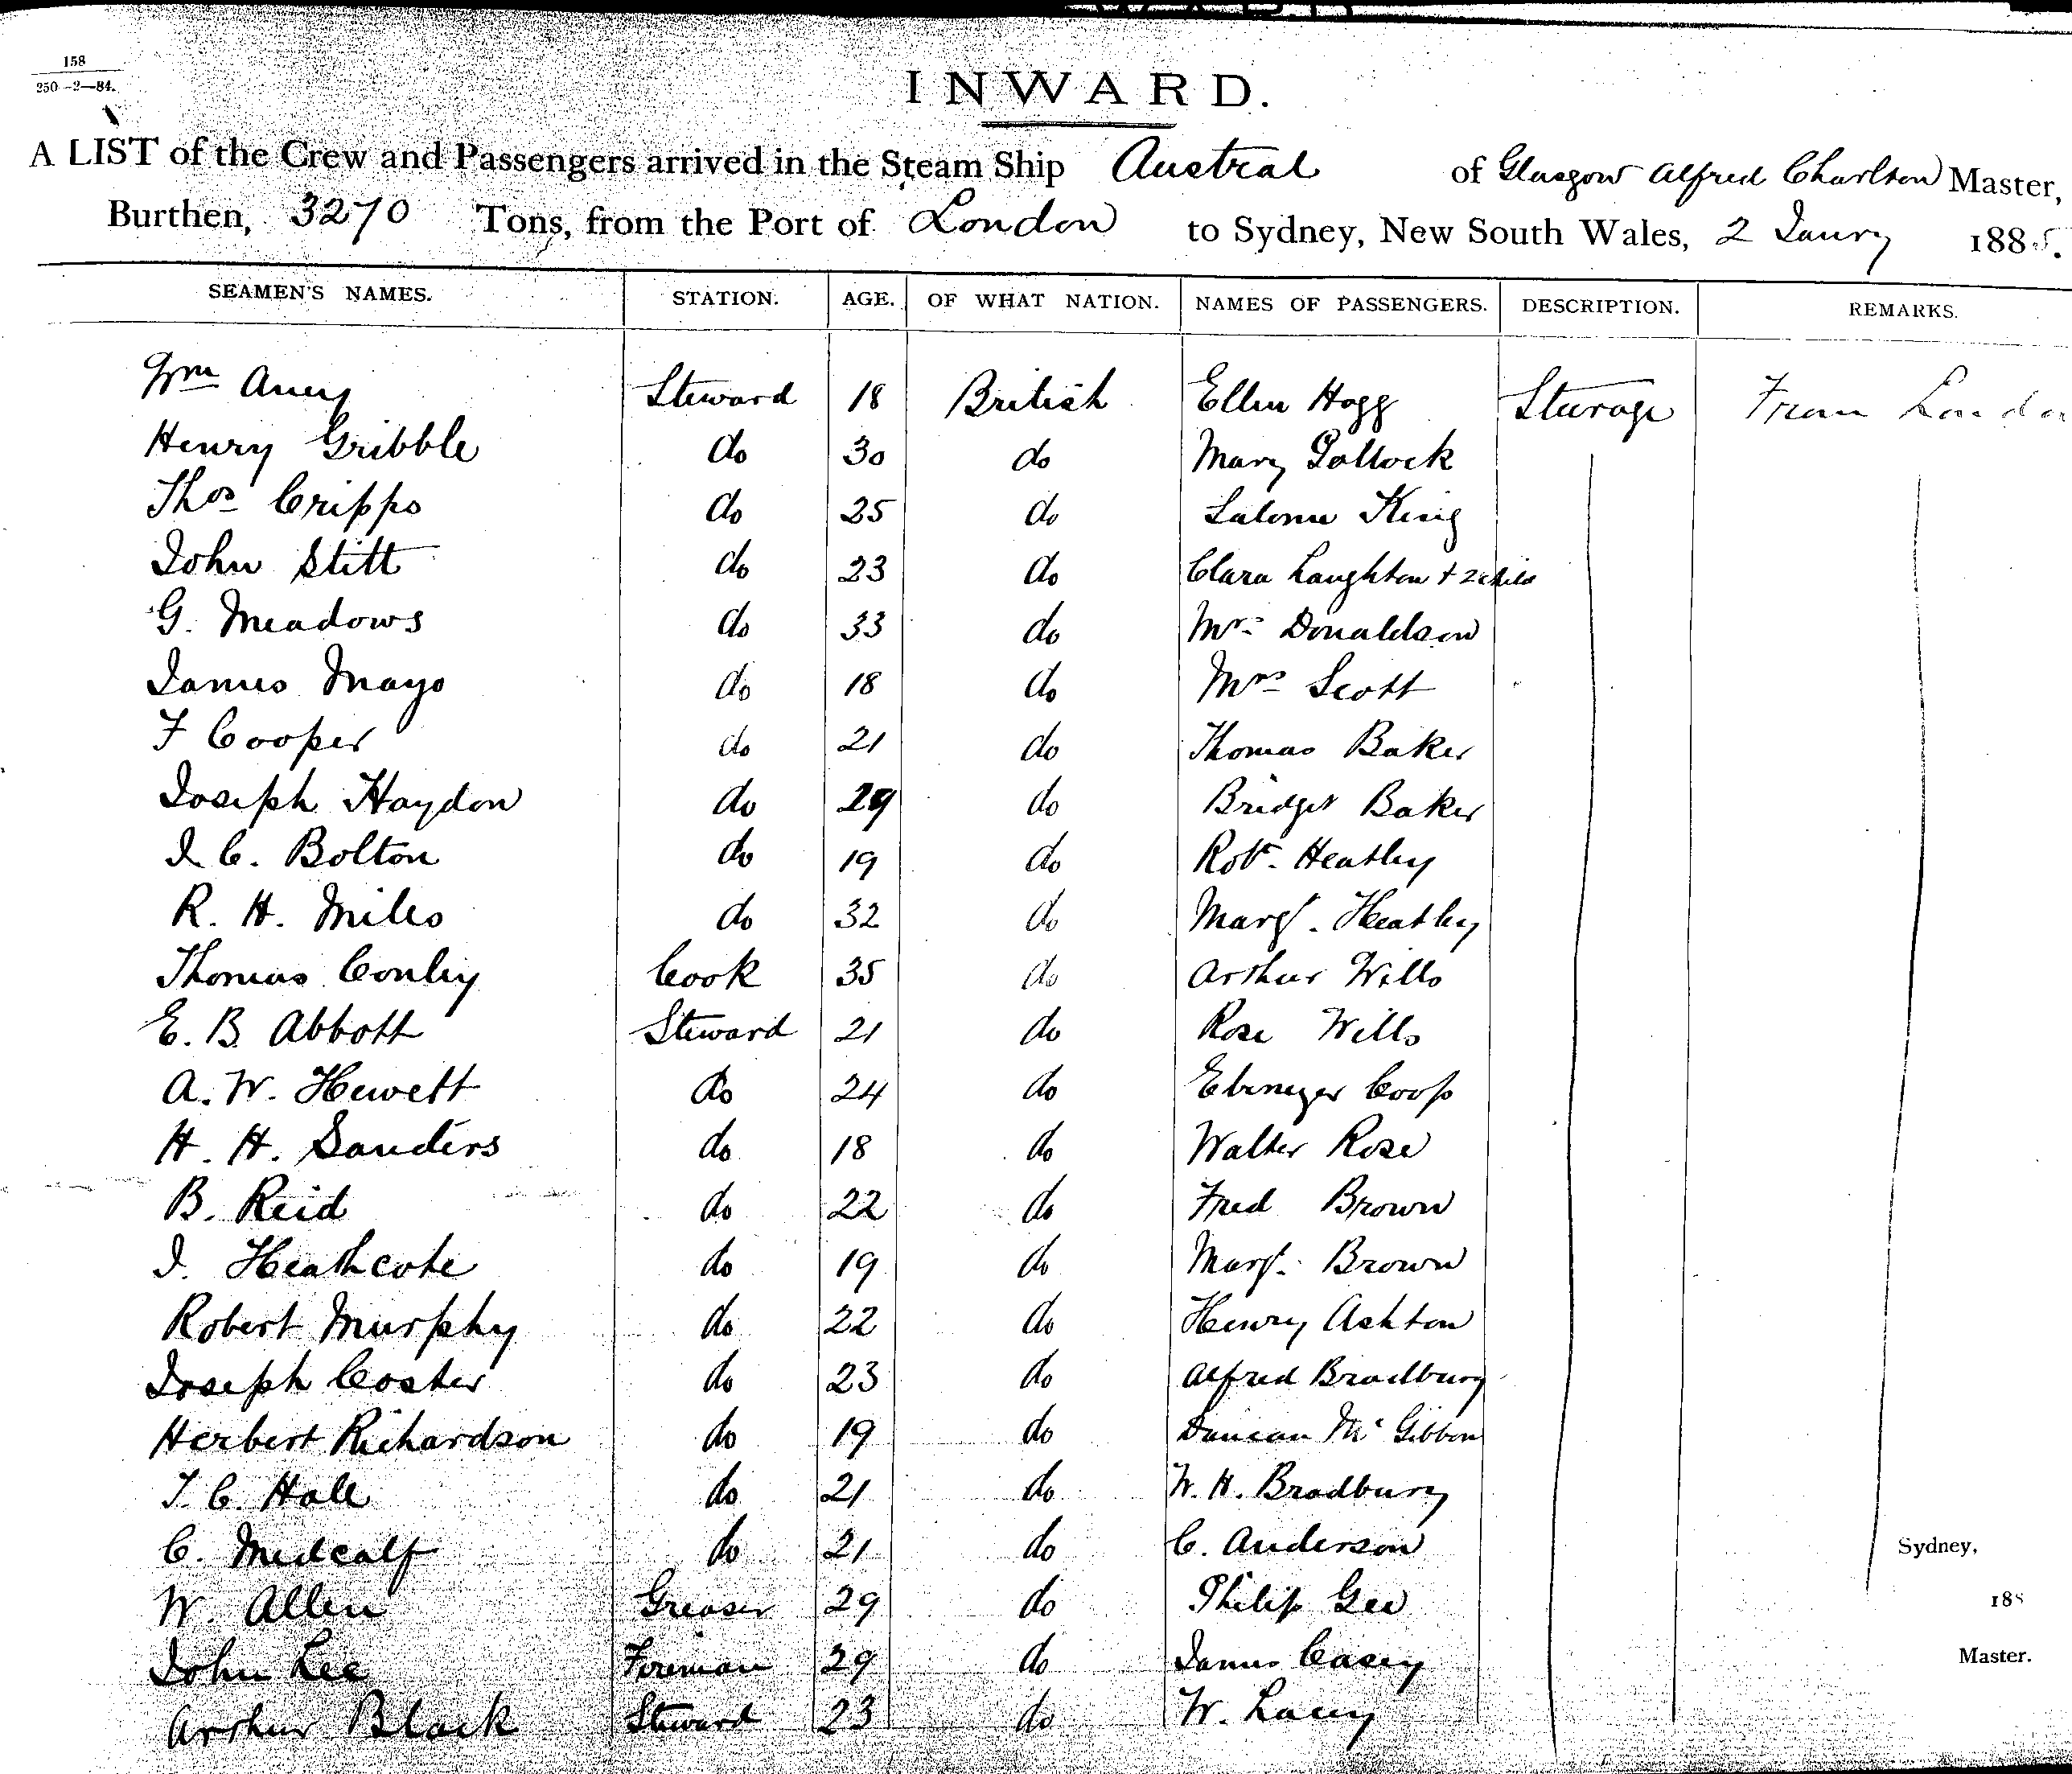 158
250-2-84.
INWARD.
A LIST of the Crew and Passengers arrived in the Steam Ship Austral of Glasgow Alfred Charlton Master,
Burthen, 3270 Tons, from the Port of London to Sydney, New South Wales, 2 Janry 1885.
SEAMEN'S NAMES. STATION. AGE. OF WHAT NATION. NAMES OF PASSENGERS. DESCRIPTION. REMARKS.
Wm Avery Steward 18 British Ellen Hogg Steerage From London
Henry Gribble do 30 do Mary Pollock
Thos Cripps do 25 do Salome King
John Stitt do 23 do Clara Laughton + 2 child
G. Meadows do 33 do Mrs Donaldson
James Mayo do 18 do Mrs Scott
F Cooper do 21 do Thomas Baker
Joseph Haydon do 29 do Bridget Baker
J. C. Bolton do 19 do Robt Heatley
R. H. Miles do 32 do Margt. Heatley
Thomas Conley Cook 35 do Arthur Wills
E. B. Abbott Steward 21 do Rose Wills
A. W. Hewett do 24 do Ebenezer Coop
H. H. Sanders do 18 do Walter Rose
B. Reid do 22 do Fred Brown
J. Heathcote do 19 do Margt. Brown
Robert Murphy do 22 do Henry Ashton
Joseph Coster do 23 do Alfred Bradbury
Herbert Richardson do 19 do Duncan Mc Gibbon
T. C. Hall do 21 do W. H. Bradbury
C. Medcalf do 21 do C. Anderson Sydney,
W. Allen Greaser 29 do Philip Gee 188
John Lee Fireman 29 do James Casey Master.
Arthur Black Steward 23 do W. Lacey